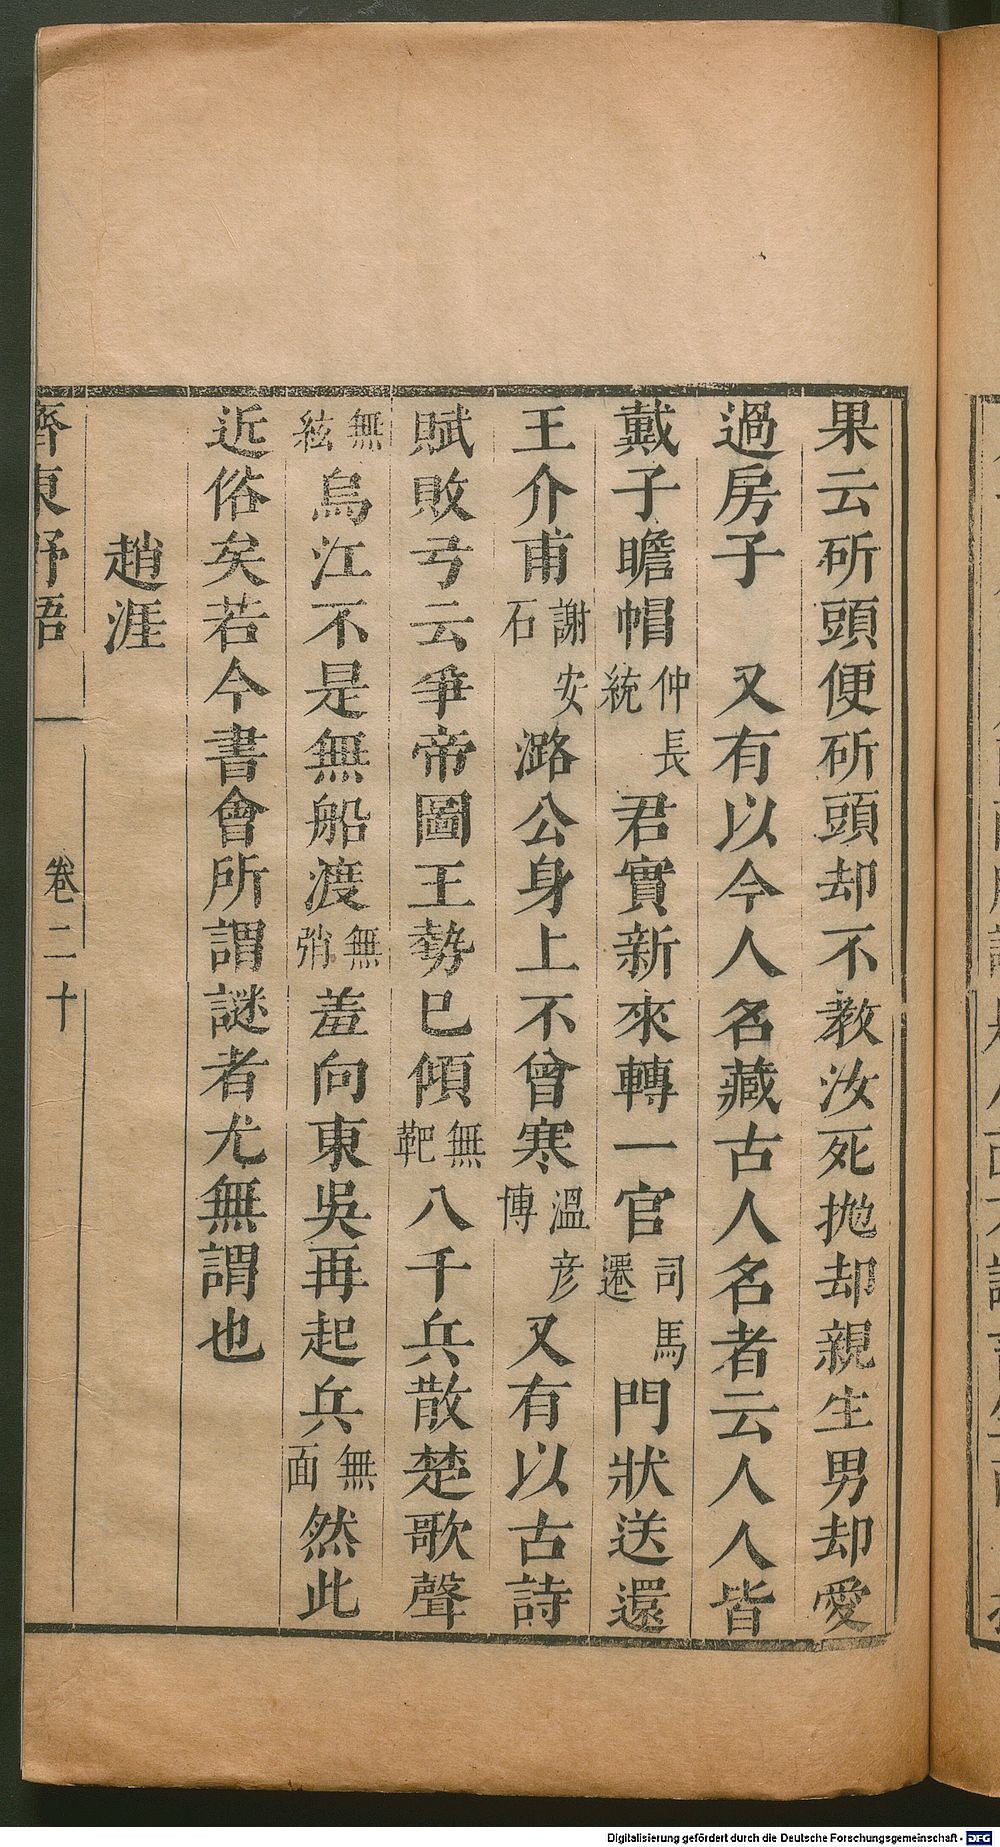 果云斫頭便斫頭却不教汝死抛却親生男却愛
過房子　又有以今人名藏古人名者云人人皆
戴子瞻帽仲長統君實新來轉一官司馬遷門狀送還
王介甫謝安石潞公身上不曾寒溫彥博又有以古詩
賦敗弓云爭帝圖王勢已傾無靶八千兵散楚歌聲
無絃烏江不是無船渡無弰羞向東吳再起兵無面然此
近俗矣若今書會所謂謎者尤無謂也
趙涯
齊東野語　卷二十
Digitalisierung gefördert durch die Deutsche Forschungsgemeinschaft - DFG